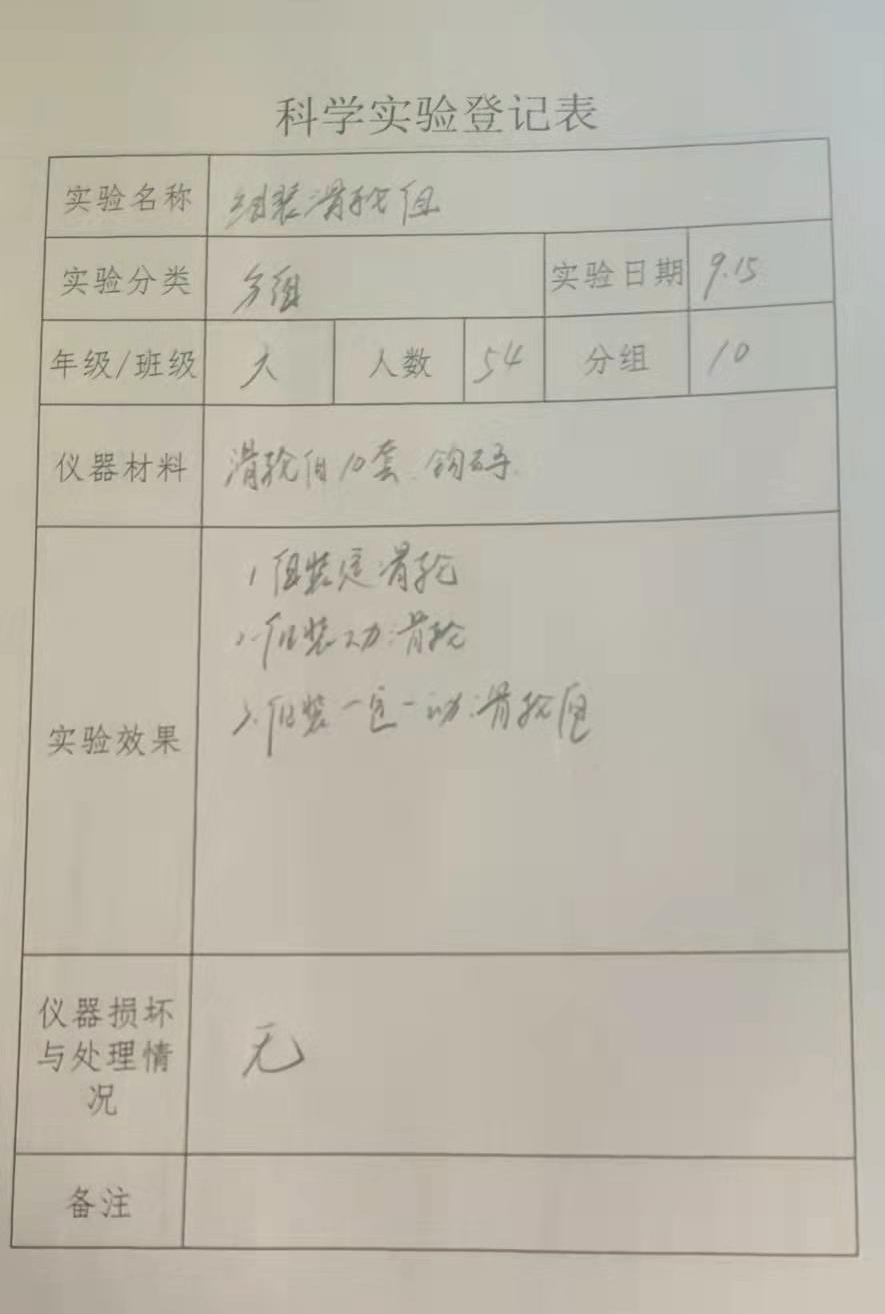 科学实验登记表
实验名称 组装滑轮组
实验分类 分组 实验日期 9.15
年级/班级 人数 54 分组 10
仪器材料 滑轮组10套 钩码
实验效果
1 组装定滑轮
2. 组装动滑轮
3. 组装一定一动滑轮组
仪器损坏
与处理情
况
无
备注